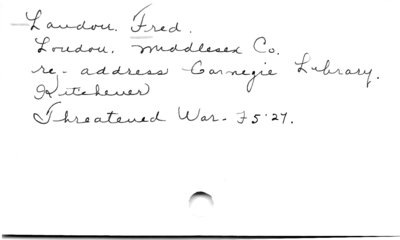 Landon. Fred.
London. Middlesex Co.
re-address Carnegie Library.
Kitchener
Threatened War - F5.27.